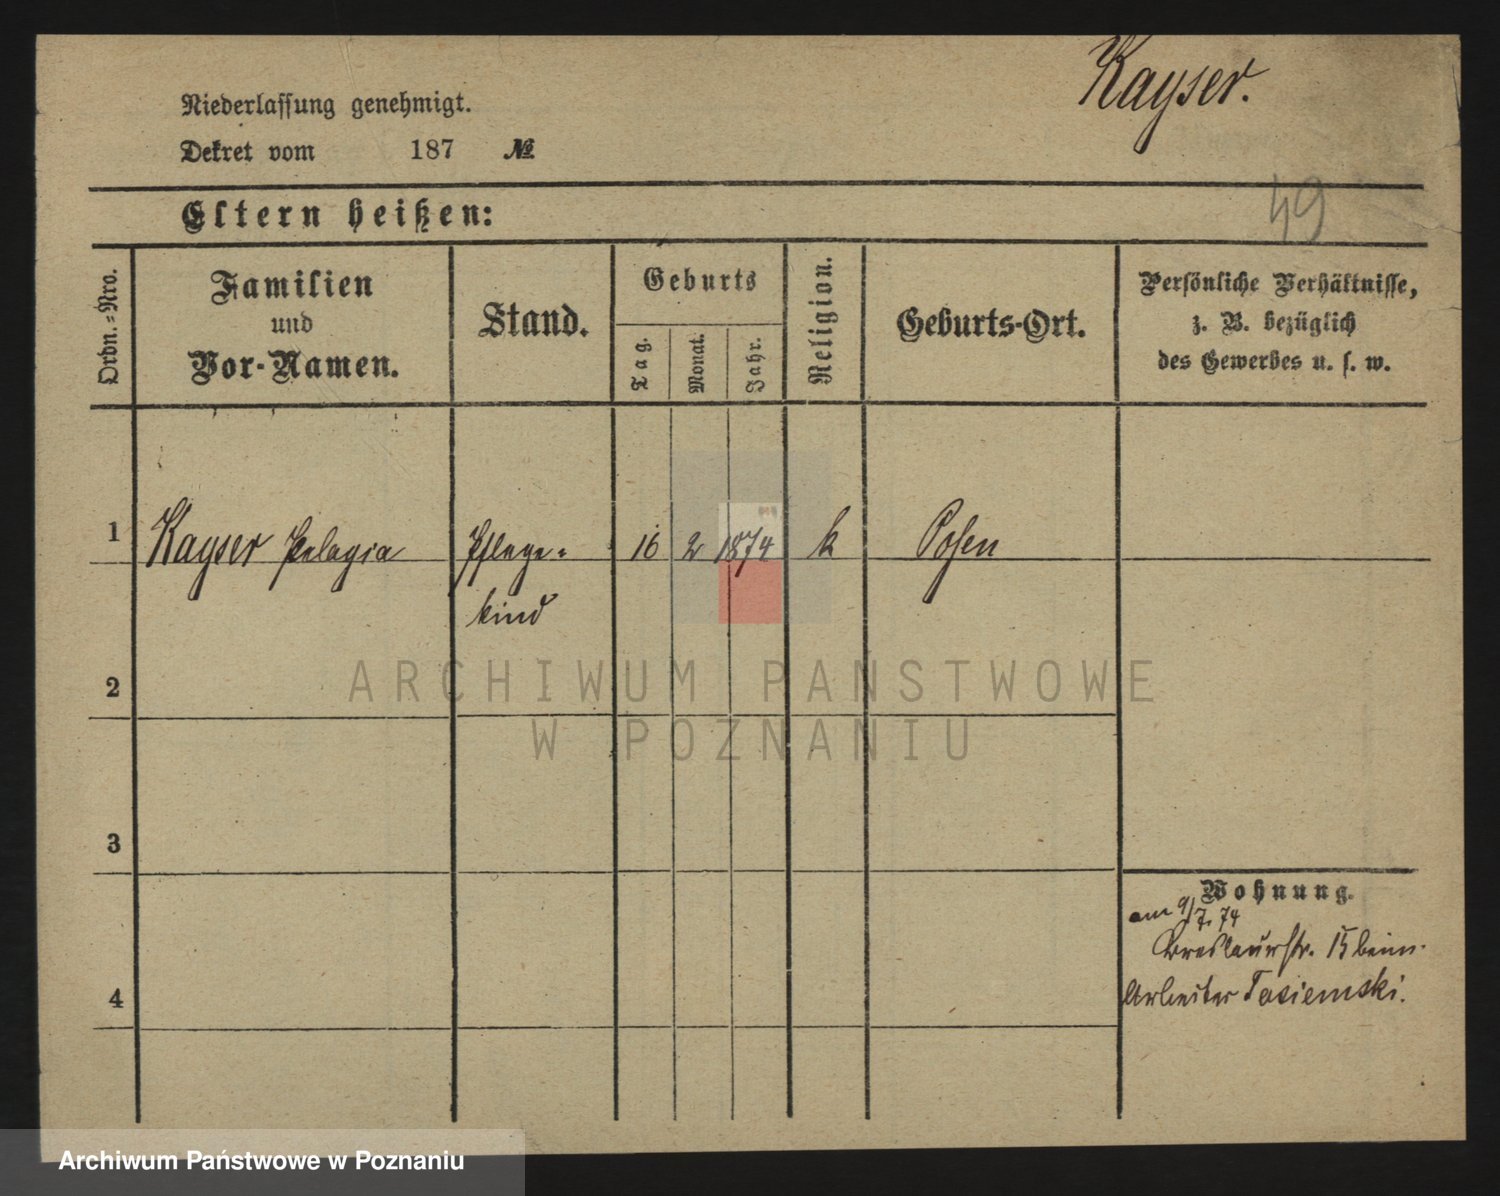 Kayser.
Niederlassung genehmigt.
Dekret vom 187 №
49
Eltern heißen:
Ordn.-Nro.
Familien
und
Vor-Namen.
Stand.
Geburts
Tag.
Monat.
Jahr.
Religion.
Geburts-Ort.
Persönliche Verhältnisse,
z. B. bezüglich
des Gewerbes u. s. w.
1 Kayser Pelagia Pflege- 16 2 1874 k Posen
kind
2
ARCHIWUM PAŃSTWOWE
W POZNANIU
3
Wohnung.
am 9/7. 74
Breslauerstr. 15 beim
Arbeiter Tasiemski.
4
Archiwum Państwowe w Poznaniu